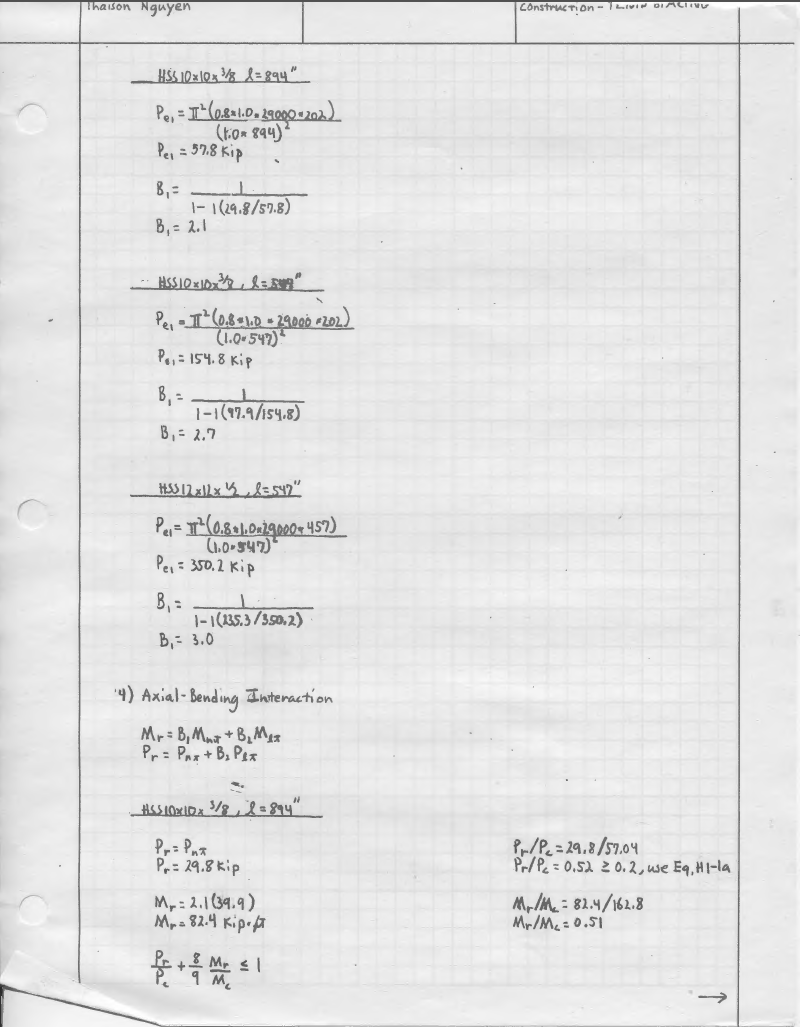 Thaison Nguyen
Construction -
HSS10×10×3/8 l=894"
Pe1 = π²(0.8*1.0*29000*202)
(1.0*894)²
Pe1 = 57.8 Kip
B1 = 1
1-1(29.8/57.8)
B1 = 2.1
HSS10×10×3/8, l=547"
Pe1 = π²(0.8*1.0*29000*202)
(1.0*547)²
Pe1 = 154.8 Kip
B1 = 1
1-1(97.9/154.8)
B1 = 2.7
HSS12×12×1/2, l=547"
Pe1 = π²(0.8*1.0*29000*457)
(1.0*547)²
Pe1 = 350.2 Kip
B1 = 1
1-1(235.3/350.2)
B1 = 3.0
4) Axial-Bending Interaction
Mr = B1Mnt + B2Mlt
Pr = Pnt + B2Plt
HSS10×10×3/8, l=894"
Pr = Pnt
Pr/Pc = 29.8/57.04
Pr = 29.8 Kip
Pr/Pc = 0.52 ≥ 0.2, use Eq. H1-1a
Mr = 2.1(39.9)
Mr/Mc = 82.4/162.8
Mr = 82.4 Kip·ft
Mr/Mc = 0.51
Pr/Pc + 8/9 Mr/Mc ≤ 1
→